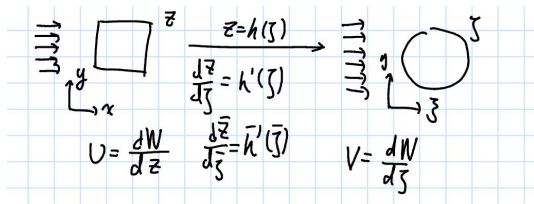 z
z=h(ζ)
ζ
dz/dζ = h'(ζ)
y
x
η
ξ
U = dW/dz
dz̄/dζ̄ = h̄'(ζ̄)
V = dW/dζ